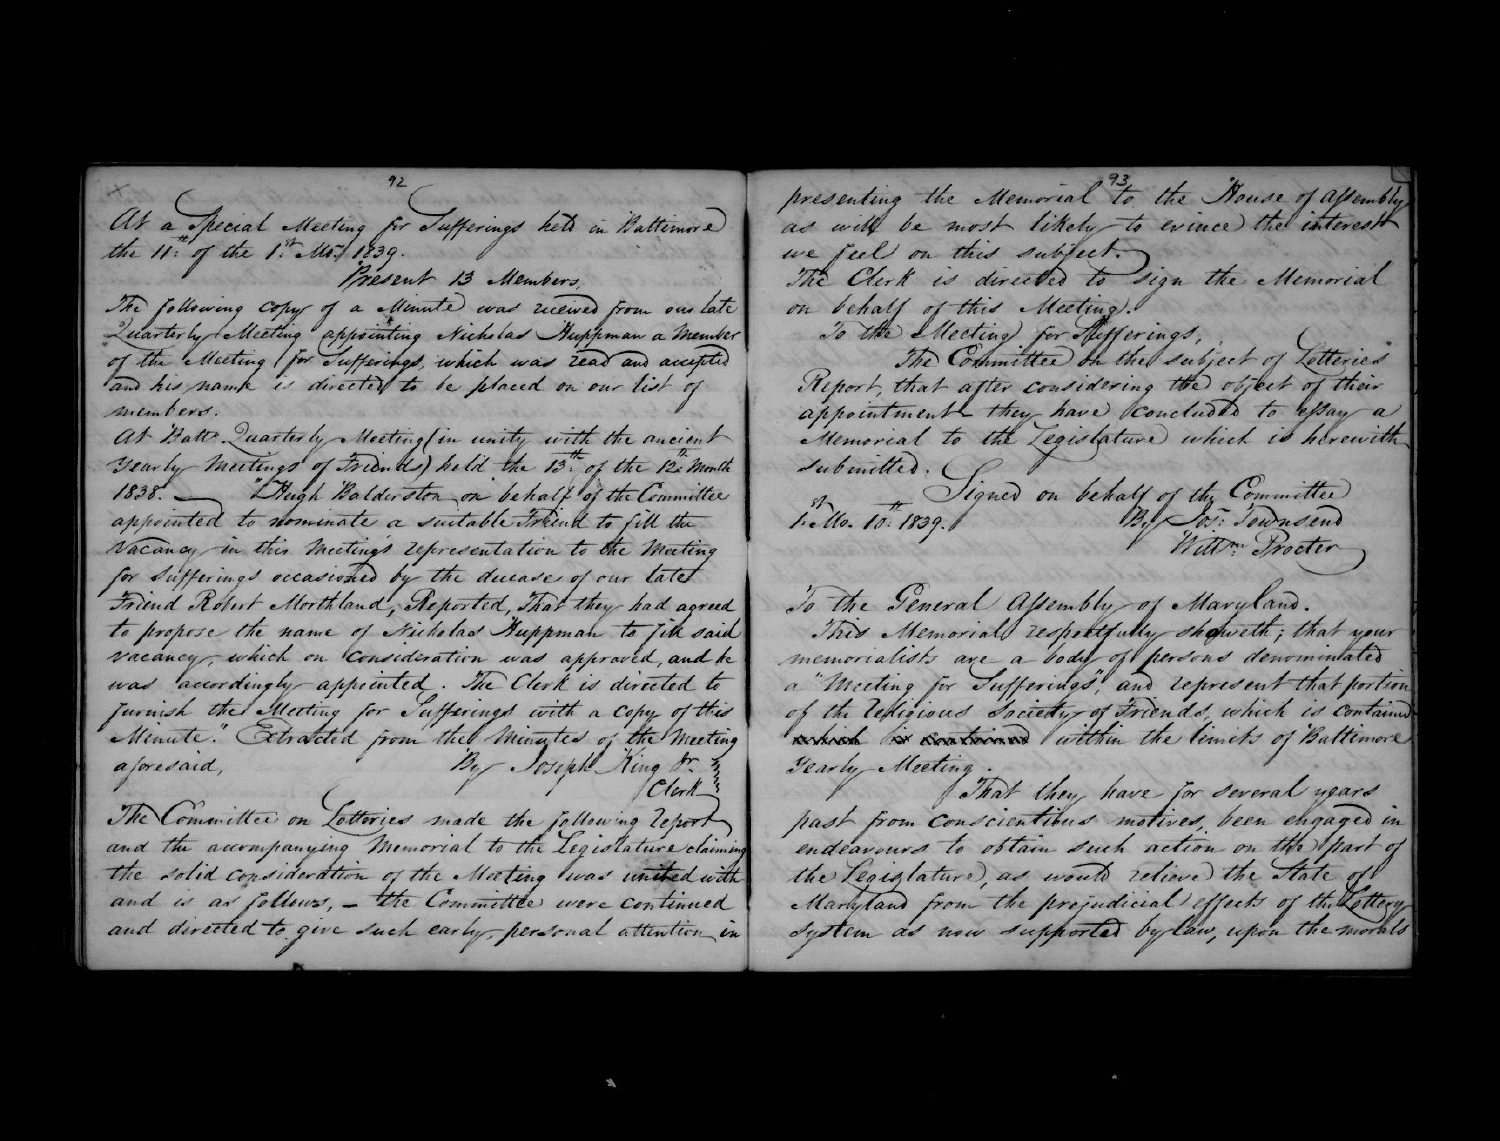 92
At a Special Meeting for Sufferings held in Baltimore
the 11th of the 1st Mo. 1839.
Present 13 Members,
The following copy of a Minute was recieved from our late
Quarterly Meeting appointing Nicholas Huppman a Member
of the Meeting for Sufferings, which was read and accepted
and his name is directed to be placed on our list of
members.
At Balt. Quarterly Meeting (in unity with the ancient
Yearly Meetings of Friends) held the 13th of the 12th Month
1838. — "Hugh Balderston on behalf of the Committee
appointed to nominate a suitable Friend to fill the
vacancy in this Meeting's representation to the Meeting
for Sufferings occasioned by the decease of our late
Friend Robert Morthland, Reported, That they had agreed
to propose the name of Nicholas Huppman to fill said
vacancy, which on consideration was approved, and he
was accordingly appointed. The Clerk is directed to
furnish the Meeting for Sufferings with a copy of this
Minute." Extracted from the Minutes of the Meeting
aforesaid, By Joseph King Jr.
Clerk
The Committee on Lotteries made the following report
and the accompanying Memorial to the Legislature claiming
the solid consideration of the Meeting was united with
and is as follows, — the Committee were continued
and directed to give such early, personal attention in
93
presenting the Memorial to the House of Assembly
as will be most likely to evince the interest
we feel on this subject.
The Clerk is directed to sign the Memorial
on behalf of this Meeting.
To the Meeting for Sufferings,
The Committee on the subject of Lotteries
Report, that after considering the object of their
appointment they have concluded to essay a
Memorial to the Legislature which is herewith
submitted.
Signed on behalf of the Committee
1st Mo. 10th 1839. By Jos. Townsend
Willm. Procter
To the General Assembly of Maryland.
This Memorial respectfully sheweth; that your
memorialists are a body of persons denominated
a "Meeting for Sufferings", and represent that portion
of the religious Society of Friends, which is contained
which is contained within the limits of Baltimore
Yearly Meeting.
That they have for several years
past from conscientious motives, been engaged in
endeavours to obtain such action on the part of
the Legislature, as would relieve the State of
Maryland from the prejudicial effects of the Lottery
system as now supported by law, upon the morals